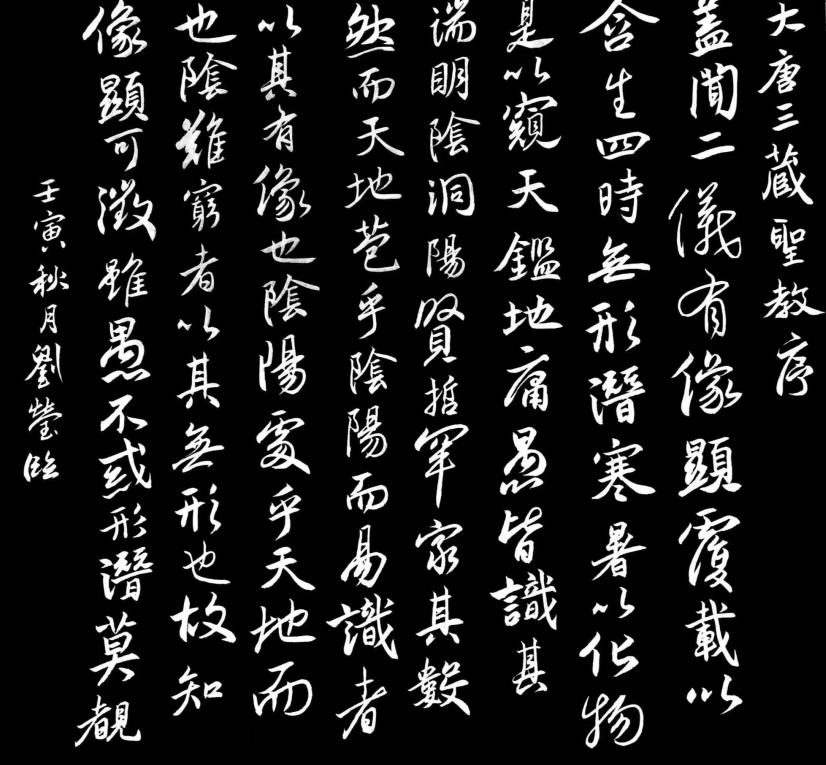 大唐三藏聖教序
蓋聞二儀有像顯覆載以
含生四時無形潛寒暑以化物
是以窺天鑑地庸愚皆識其
端明陰洞陽賢哲罕窮其數
然而天地苞乎陰陽而易識者
以其有像也陰陽處乎天地而
也陰難窮者以其無形也故知
像顯可徵雖愚不惑形潛莫覩
壬寅秋月劉瑩臨